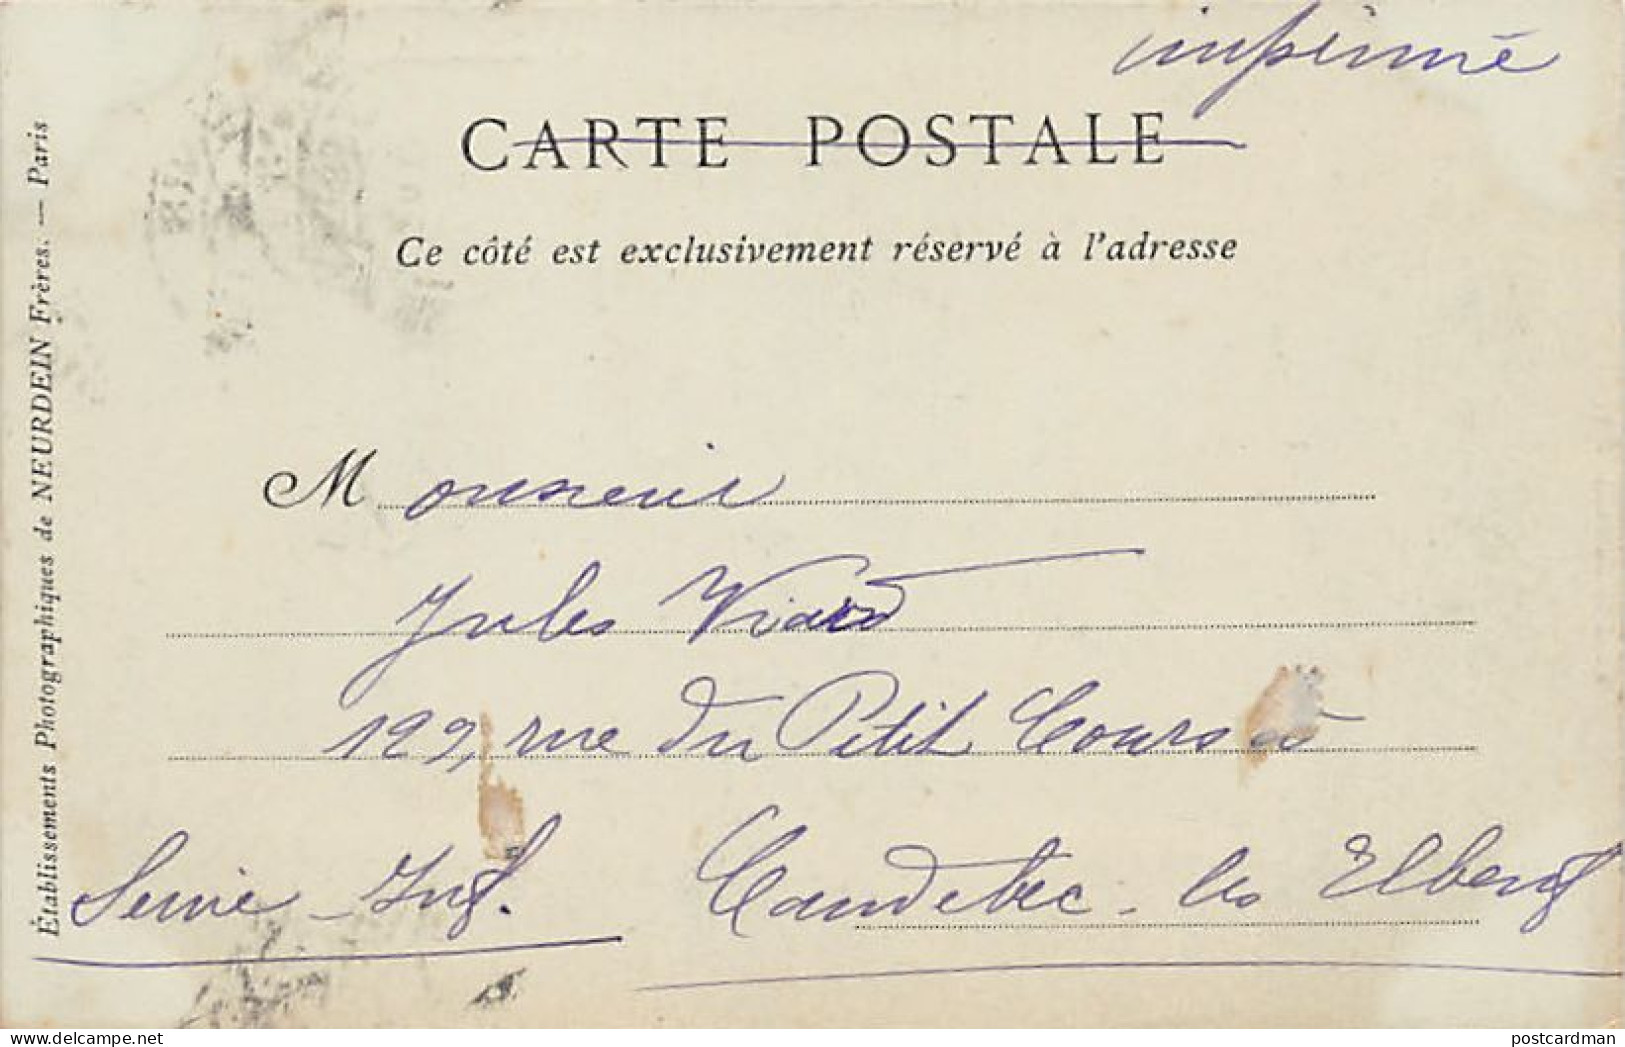 imprimé
CARTE POSTALE
Ce côté est exclusivement réservé à l'adresse
Monsieur
Jules Viard
199, rue du Petit Cours à
Caudebec-les Elbeuf
Seine-Inf.
Établissements Photographiques de NEURDEIN Frères. — Paris
delcampe.net
postcardman